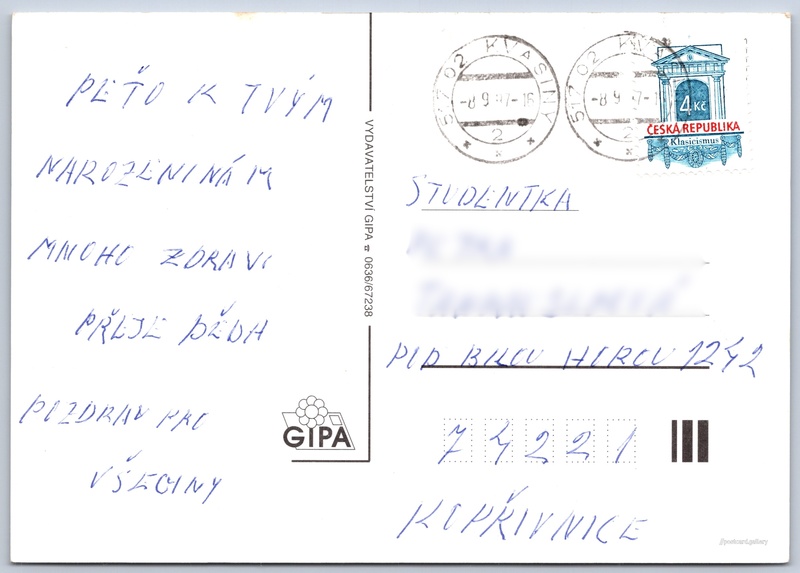 PEŤO K TVÝM
NAROZENINÁM
MNOHO ZDRAVÍ
PŘEJE DĚDA
POZDRAV PRO
VŠECHNY
VYDAVATELSTVÍ GIPA ☎ 0636/67238
GIPA
517 02 KVASINY
-8.9.97-16
2
517 02 KV
-8.9.97-1
2
4 Kč
ČESKÁ REPUBLIKA
Klasicismus
STUDENTKA
POD BÍLOU HOROU 1242
74221
KOPŘIVNICE
@postcard.gallery